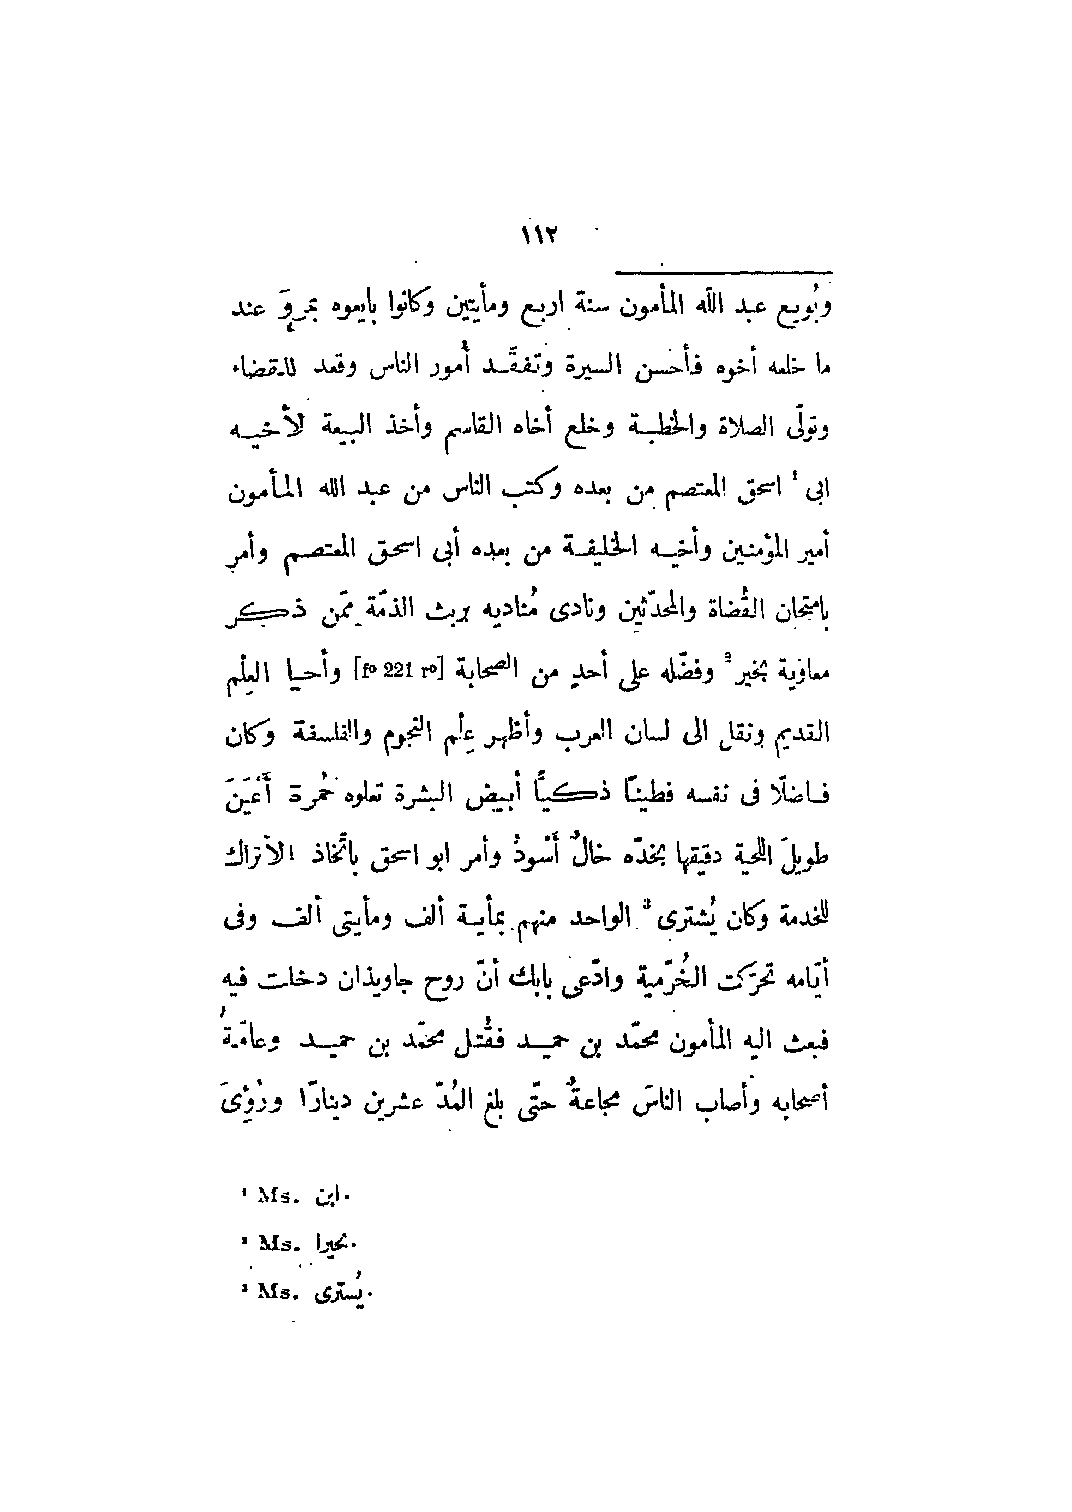 ١١٢
وبُويع عبد اللّه المأمون سنة اربع ومأيتين وكانوا بايعوه بمروَ عند
ما خلعه أخوه فأحسن السيرة وتفقَّد أُمور الناس وقعد للقضاء
وتولّى الصلاة والخطبة وخلع أخاه القاسم وأخذ البيعة لأخيه
ابى ¹ اسحق المعتصم من بعده وكتب الناس من عبد الله المأمون
أمير المؤمنين وأخيه الخليفة من بعده أبى اسحق المعتصم وأمر
بامتحان القُضاة والمحدّثين ونادى مُناديه برئت الذمّة ممّن ذكر
معاوية بخير ² وفضّله على أحدٍ من الصحابة [fº 221 rº] وأحيا العِلْم
القديم ونقل الى لسان العرب وأظهر عِلْم النجوم والفلسفة وكان
فاضلًا فى نفسه فطينًا ذكيًّا أبيض البشرة تعلوه حُمرة أَعْيَنَ
طويلَ اللحية دقيقها بخدّه خالٌ أَسْودُ وأمر ابو اسحق باتّخاذ الأتراك
للخدمة وكان يُشترى ³ الواحد منهم بمأية ألف ومأيتى ألف وفى
أيّامه تحرّكت الخُرّمية وادّعى بابك أنّ روح جاويذان دخلت فيه
فبعث اليه المأمون محمّد بن حميد فقُتل محمّد بن حميد وعامّةُ
أصحابه وأصاب الناسَ مجاعةٌ حتّى بلغ المُدّ عشرين دينارًا ورُؤِىَ
¹ Ms. ابن.
² Ms. بخيرا.
³ Ms. يُسترى.